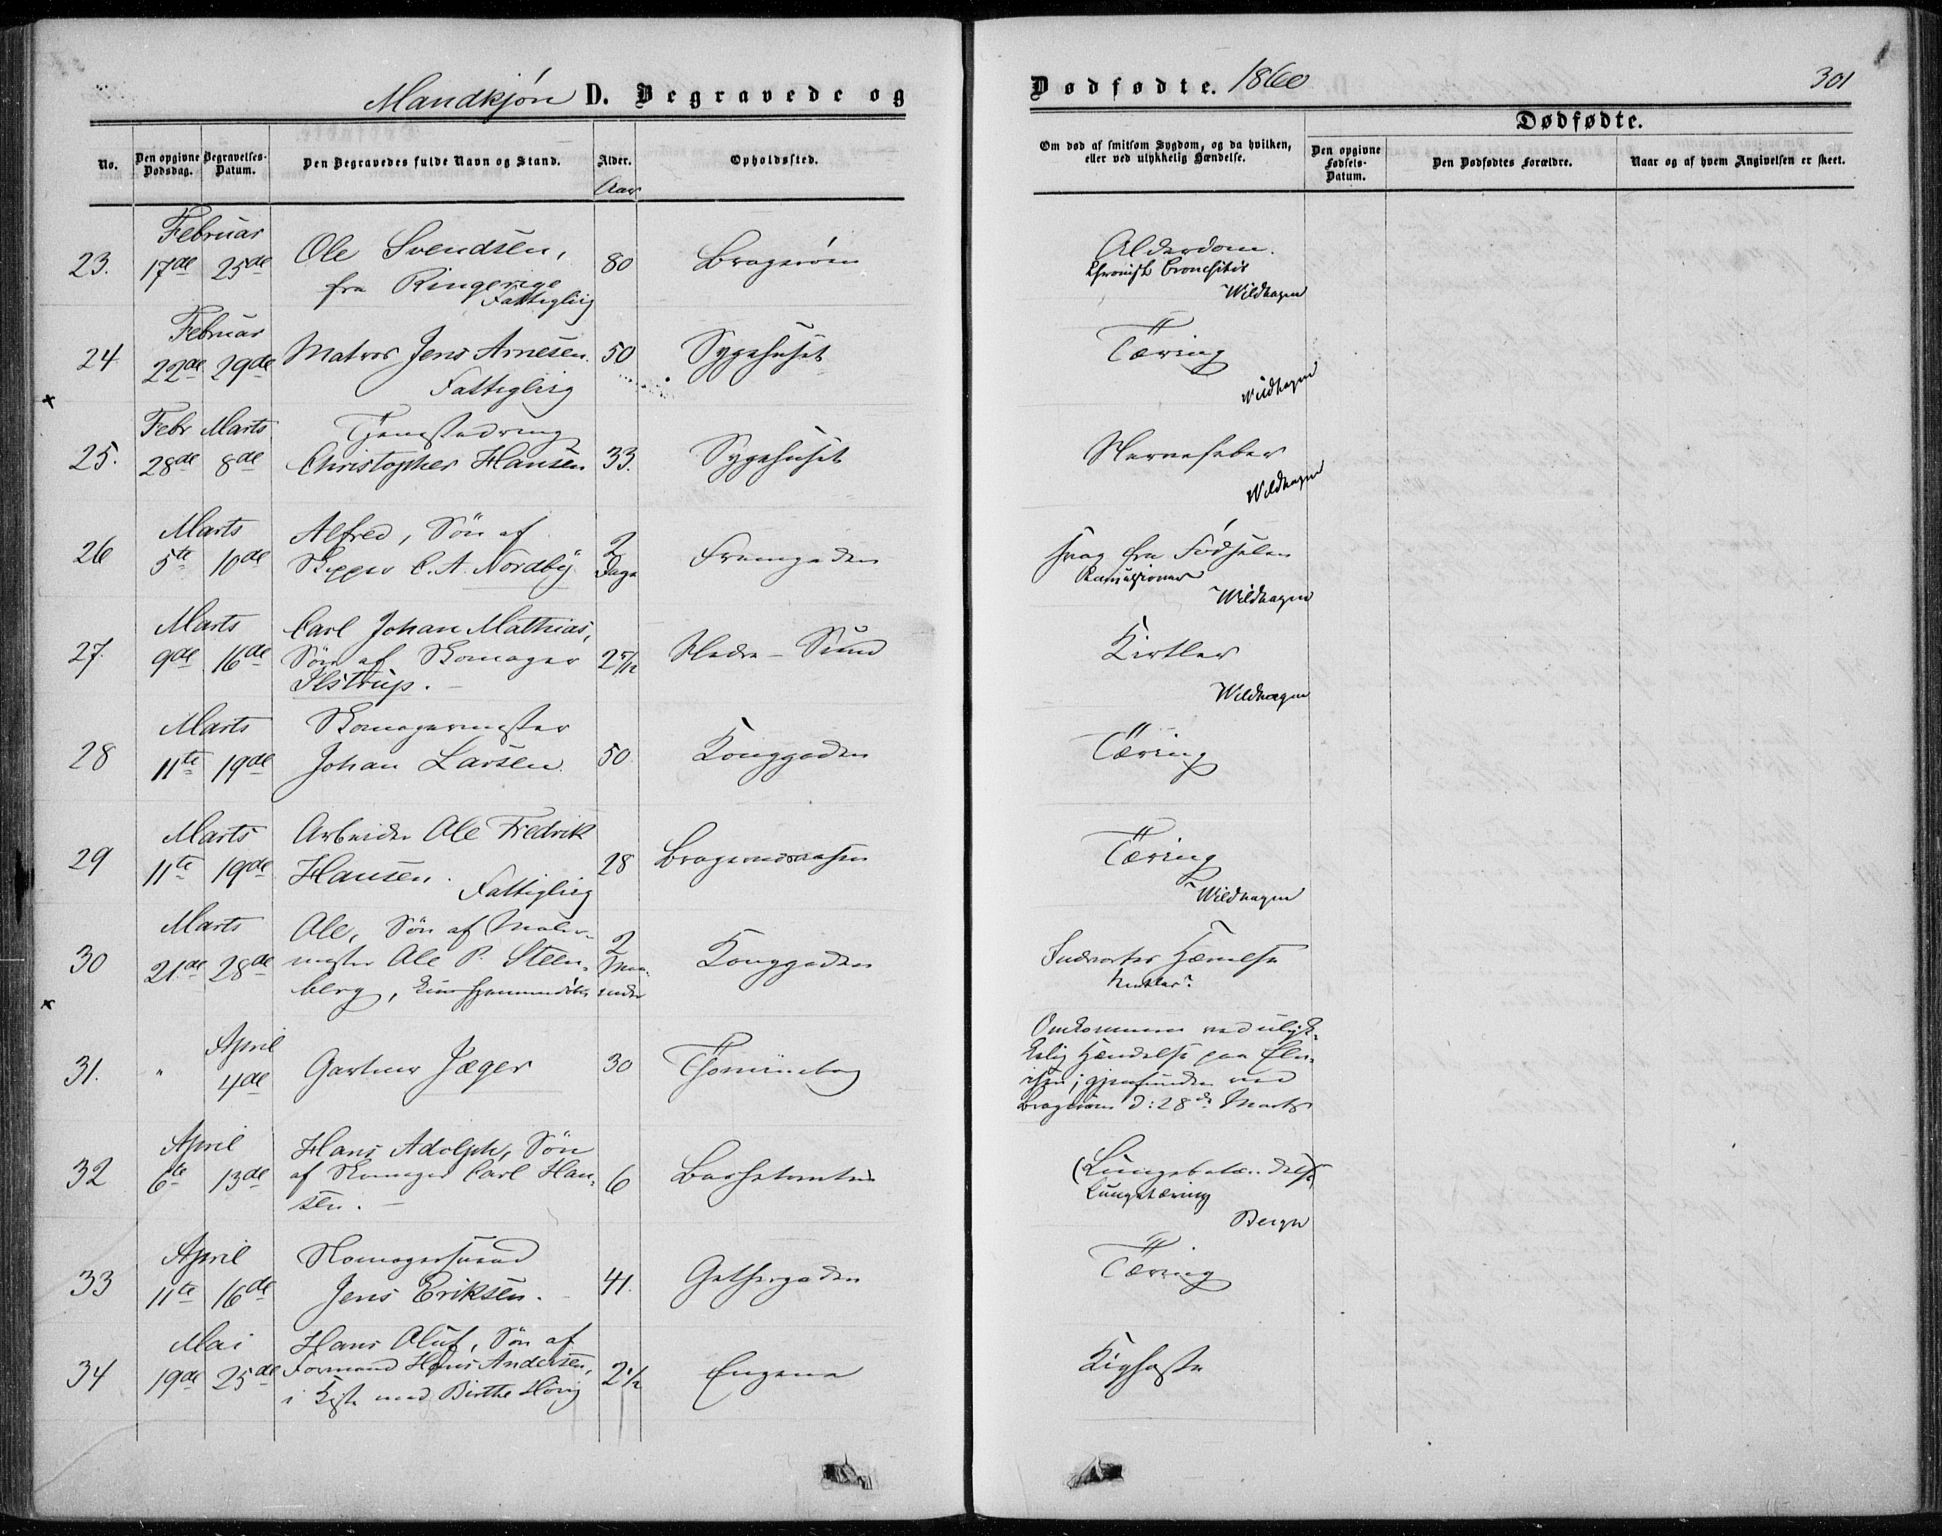 Mandkjøn D. Begravede og
Dødfødte. 1860
301
No.
Den opgivne Dødsdag.
Begravelses-Datum.
Den Begravedes fulde Navn og Stand.
Alder.
Aar
Opholdssted.
Om død af smitsom Sygdom, og da hvilken,
eller ved ulykkelig Hændelse.
Dødfødte.
Den opgivne Fødsels-Datum.
Den Dødfødtes Forældre.
Naar og af hvem Angivelsen er skeet.
Februar
23. 17de 25de Ole Svendsen, 80 Bragernæs Alderdom.
fra Ringerige chronisk Bronchitis
Fattiglig Wildhagen
Februar
24 22de 29de Matros Jens Arnesen. 50 Sygehuset Tæring
Fattiglig Wildhagen
Febr Marts Tjenestedreng
25. 28de 8de Christopher Hansen 33. Sygehuset Nervefeber
Wildhagen
Marts Alfred, Søn af 2
26 5te 10de Skipper C. A. Nordby Dage Fremgaden svag fra Fødselen
Wildhagen
Marts Carl Johan Mathias,
27. 9de 16de Søn af Skomager 2 5/12 Nedre-Sund Kirtler
Ilstrup. Wildhagen
Marts Skomagermester
28 11te 19de Johan Larsen 50. Konggaden Tæring
Marts Arbeider Ole Fredrik
29 11te 19de Hansen. 28 Bragernæsaasen Tæring
Fattiglig Wildhagen
Marts Ole, Søn af Maler-
30 21de 28de mester Ole P. Steen- 2 Konggaden Indvortes
berg,
April Omkommen ved ulyk-
31. " 4de Gartner Jæger 30 kelig Hændelse paa
gjenfunden ved
Bragernæs d: 28de Marts
April Hans Adolph, Søn
32 6te 13de af Skomager Carl Han- 6
sen. Lungetæring
April Skomagersvend
33 11te 16de Jens Eriksen. 41. Gethergaden Tæring
Mai Hans Oluf, Søn af
34 19de 25de Formand Hans Andersen, 2 1/2 Engene Kighoste
i Kiste med Birthe Høvig